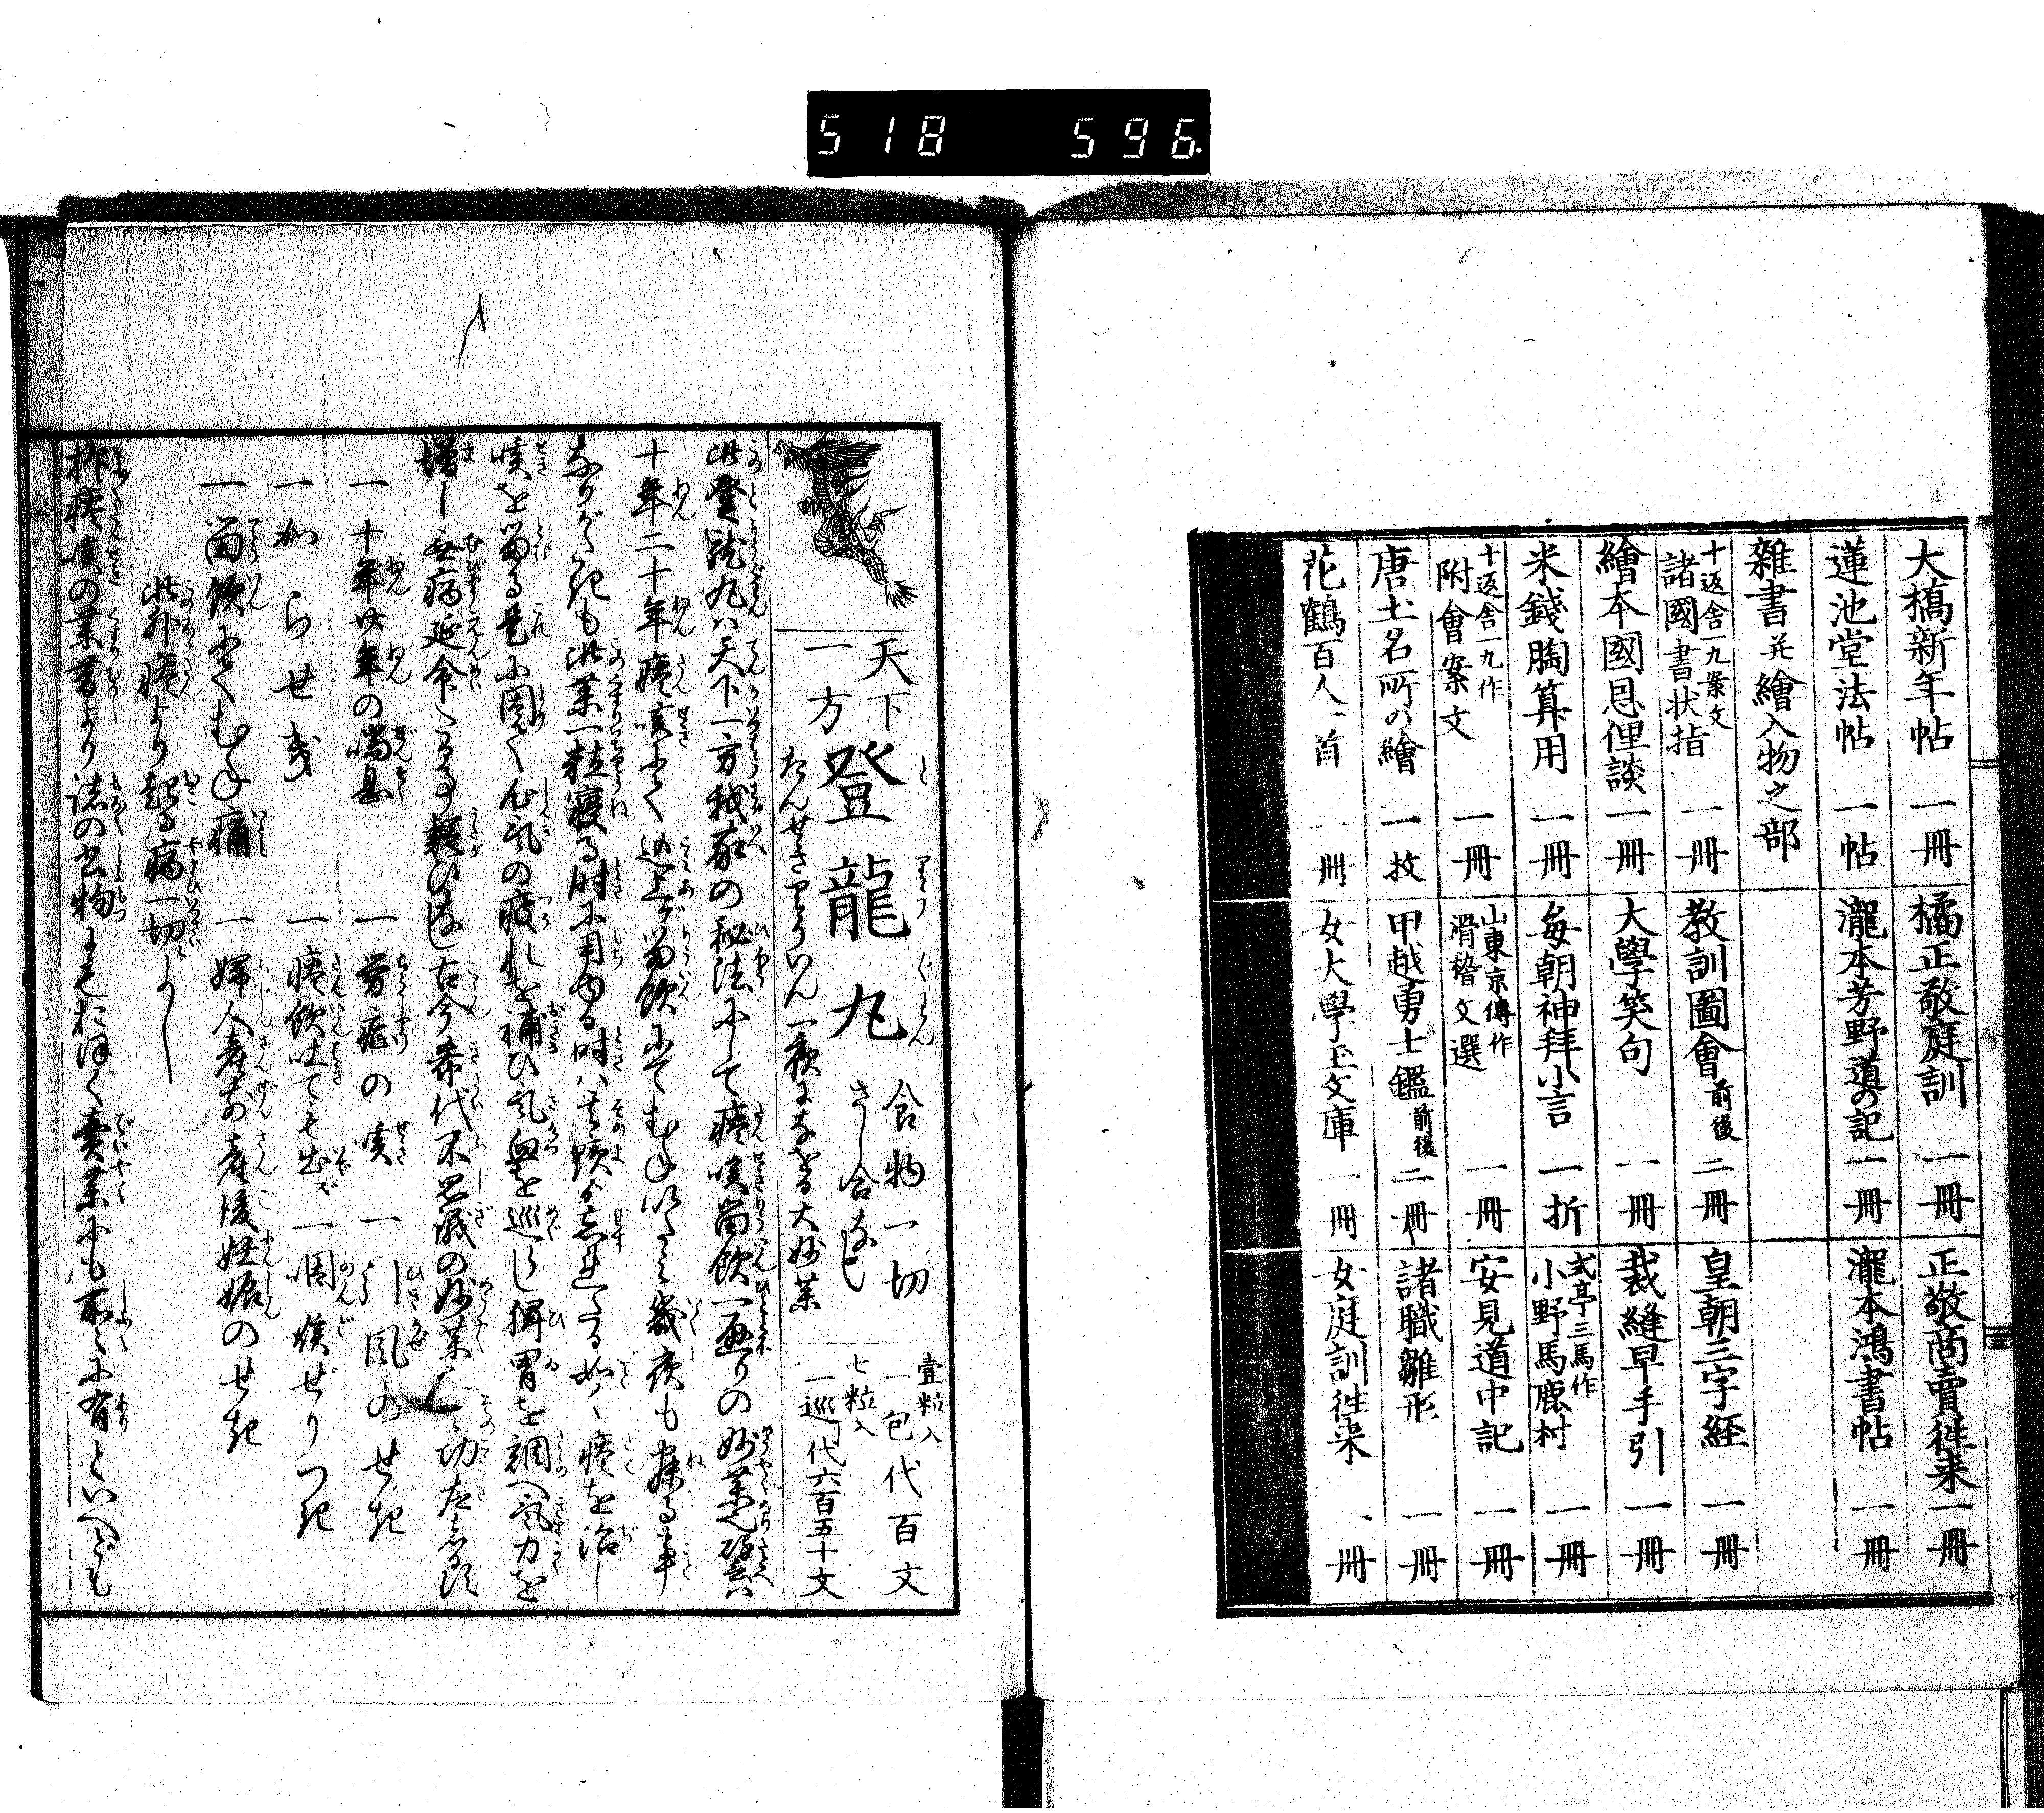 518 596
大橋新年帖 一冊
橘正敬庭訓 一冊
正敬商賣徃来 一冊
蓮池堂法帖 一帖
瀧本芳野道の記 一冊
瀧本鴻書帖 一冊
雜書并繪入物之部
十返舎一九案文
諸國書状指 一冊
教訓圖會 前後 二冊
皇朝三字経 一冊
繪本國恩俚談 一冊
大學笑句 一冊
裁縫早手引 一冊
米錢胸算用 一冊
毎朝神拜小言 一折
式亭三馬作
小野馬鹿村 一冊
十返舎一九作
附會案文 一冊
山東京傳作
滑稽文選 一冊
安見道中記 一冊
唐土名所の繪 一枚
甲越勇士鑑 前後 二冊
諸職雛形 一冊
花鶴百人一首 一冊
女大學玉文庫 一冊
女庭訓徃来 一冊
天下
一方
登龍丸
食物一切
さし合なし
壹粒入
一包代百文
七粒入
一巡代六百五十文
たんせきりういん一夜になをる大妙薬
此登龍丸ハ天下一方我家の秘法にして痰咳留飲一通りの妙薬也
十年二十年痰咳にて迫上ゲ留飲にてむね
なりがたきも此薬一粒寝る時に用ゆる時ハ
咳を留る是に因て心氣の疲れを補ひ氣血を巡らし脾胃を調へ氣力を
増し無病延命
古今希代不思議の妙薬
一 十年廿年の喘息
一 労症の咳
一 引風のせき
一 からせき
一 痰飲吐ても出ズ
一 咽喉ぜりつき
一 留飲にてむね痛
一 婦人産前産後妊娠のせき
此外痰より起る病一切によし
抑痰咳の薬
諸の書物
賣薬にも
有といへども